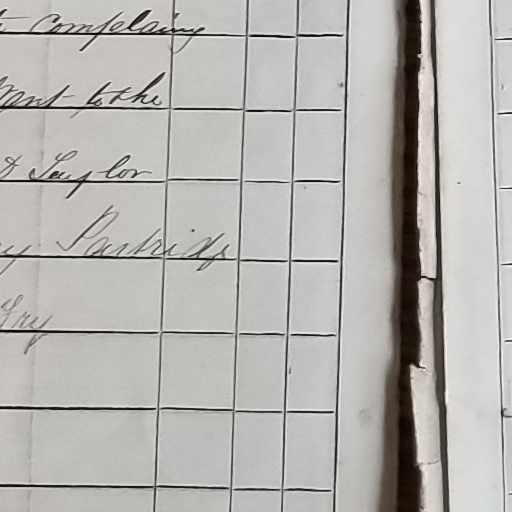 complaing
to the
& Taylor
y Partridge
Fry